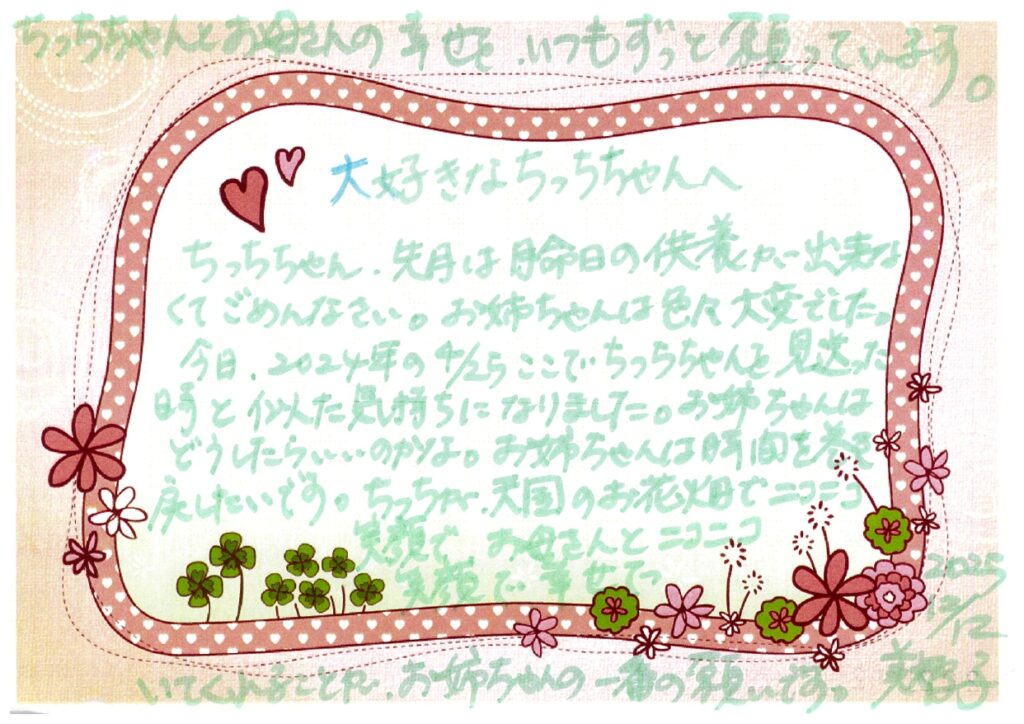 ちっちちゃんとお母さんの幸せを、いつもずっと願っています。
大好きなちっちちゃんへ
ちっちちゃん、先月は月命日の供養が出来な
くてごめんなさい。お姉ちゃんは色々大変でした。
今日、2024年の4/25ここでちっちちゃんを見送った
時と似た気持ちになりました。お姉ちゃんは
どうしたらいいのかな。お姉ちゃんは時間を巻き
戻したいです。ちっちが、天国のお花畑でニコニコ
笑顔で お母さんとニコニコ
笑顔で幸せで
いてくれることが、お姉ちゃんの一番の願いです。
2025
12/12